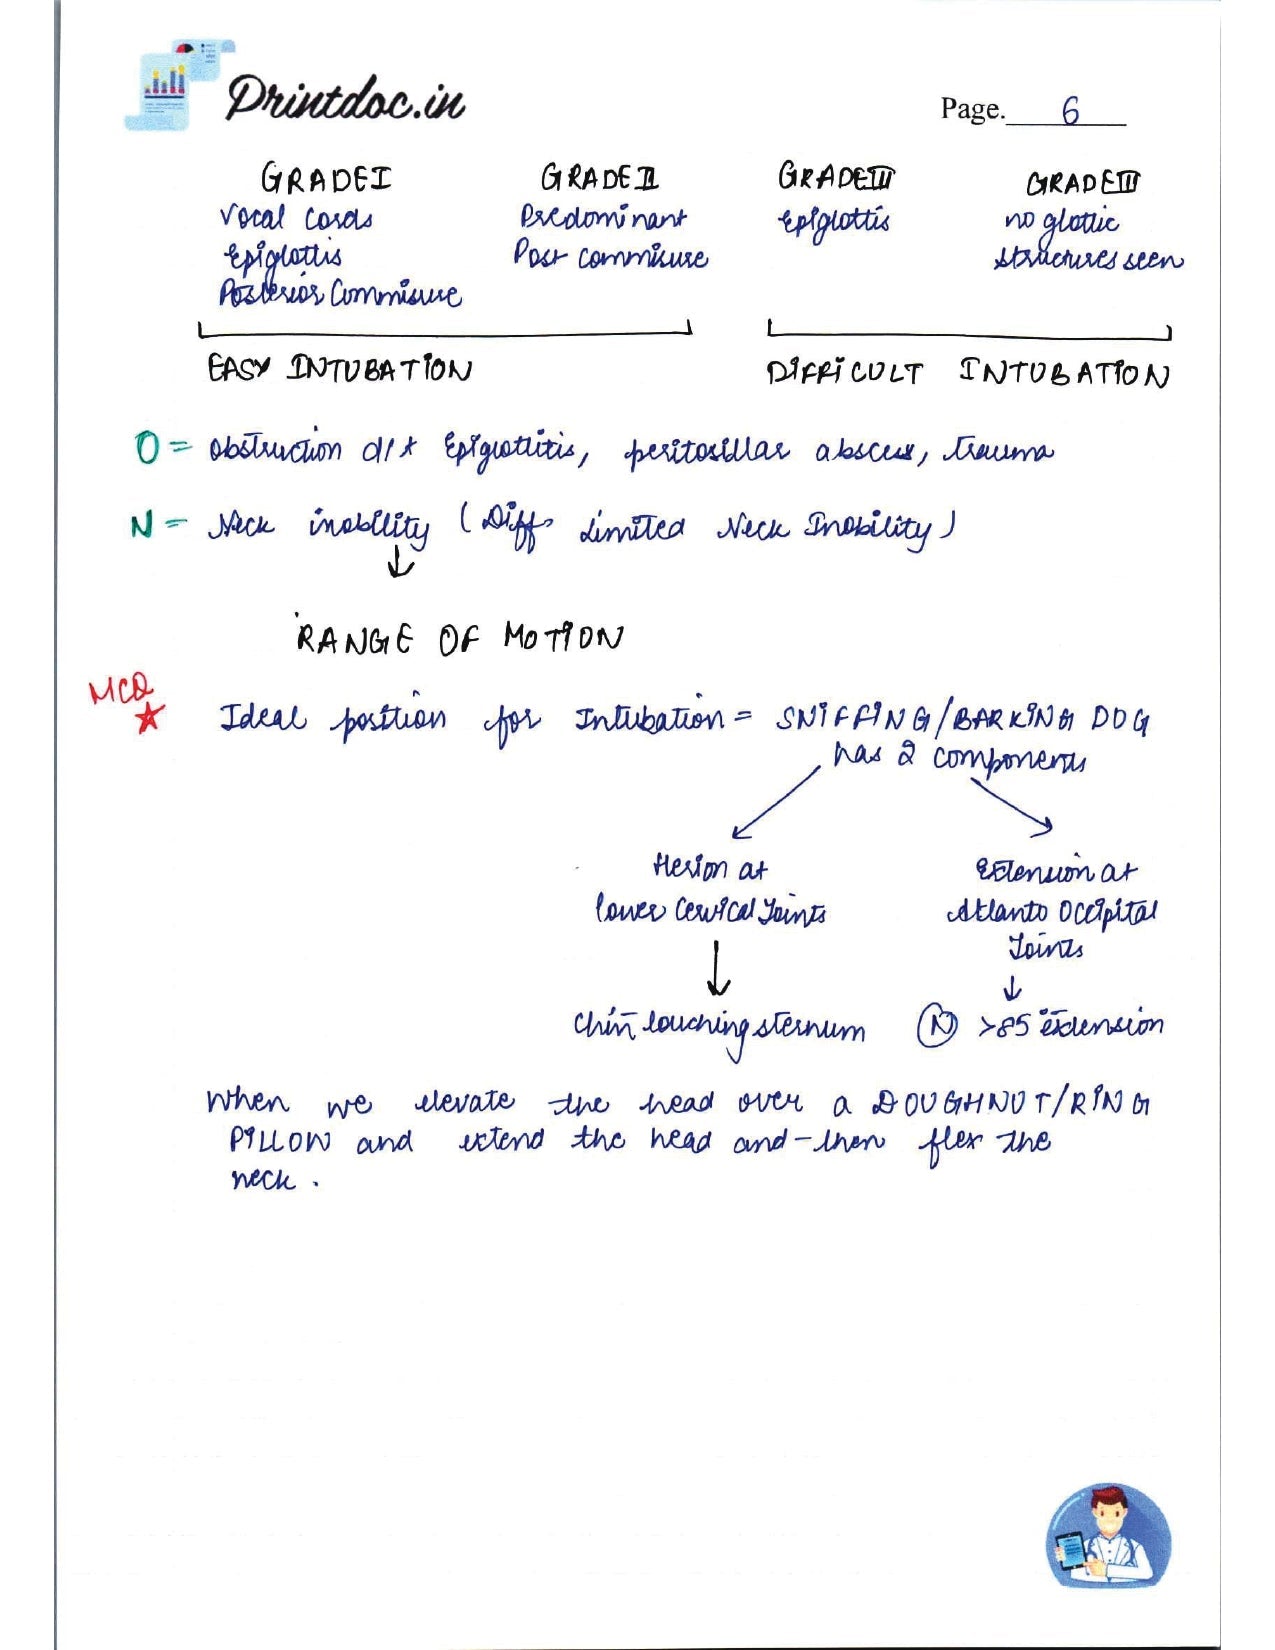 Printdoc.in
Page. 6
GRADE I GRADE II GRADE III GRADE III
Vocal Cords Predominant Epiglottis no glottic
Epiglottis Post commisure structures seen
Posterior Commisure
EASY INTUBATION DIFFICULT INTUBATION
O = Obstruction d/t Epiglottitis, peritosillar abscess, trauma
N = Neck inobility (Diff. Limited Neck Inobility)
RANGE OF MOTION
MCQ
Ideal position for Intubation = SNIFFING/BARKING DOG
has 2 components
flexion at Extension at
lower Cervical Joints Atlanto Occipital
Joints
Chin touching sternum N >85 extension
When we elevate the head over a DOUGHNUT/RING
PILLOW and extend the head and then flex the
neck.